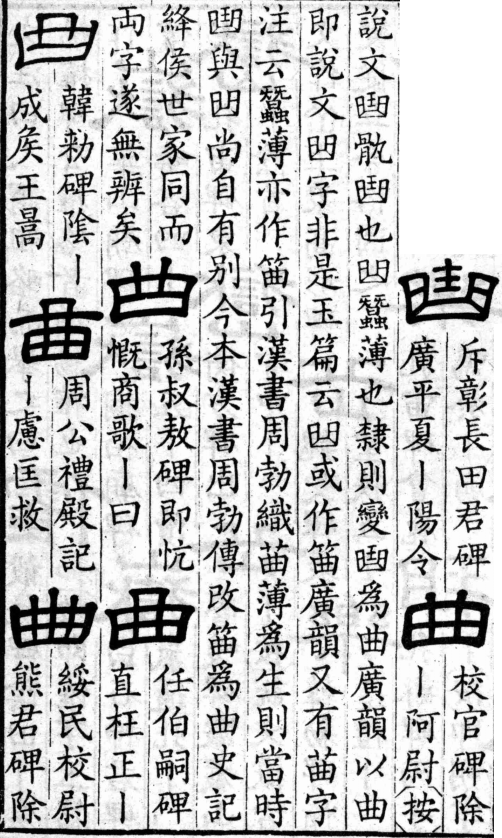 曲
斥彰長田君碑
廣平夏丨陽令
曲
校官碑除
丨阿尉按
說文𠚖骩𠚖也𠙽蠶薄也隸則變𠚖為曲廣韻以曲
即說文𠙽字非是玉篇云𠙽或作𥬔廣韻又有䒼字
注云蠶薄亦作𥬔引漢書周勃織䒼薄為生則當時
𠚖與𠙽尚自有別今本漢書周勃傳改𥬔爲曲史記
絳侯世家同而
兩字遂無辨矣
曲
孫叔敖碑即忼
慨商歌丨曰
曲
任伯嗣碑
直枉正丨
曲
韓勑碑陰丨
成矦王暠
曲
周公禮殿記
丨慮匡救
曲
綏民校尉
熊君碑除